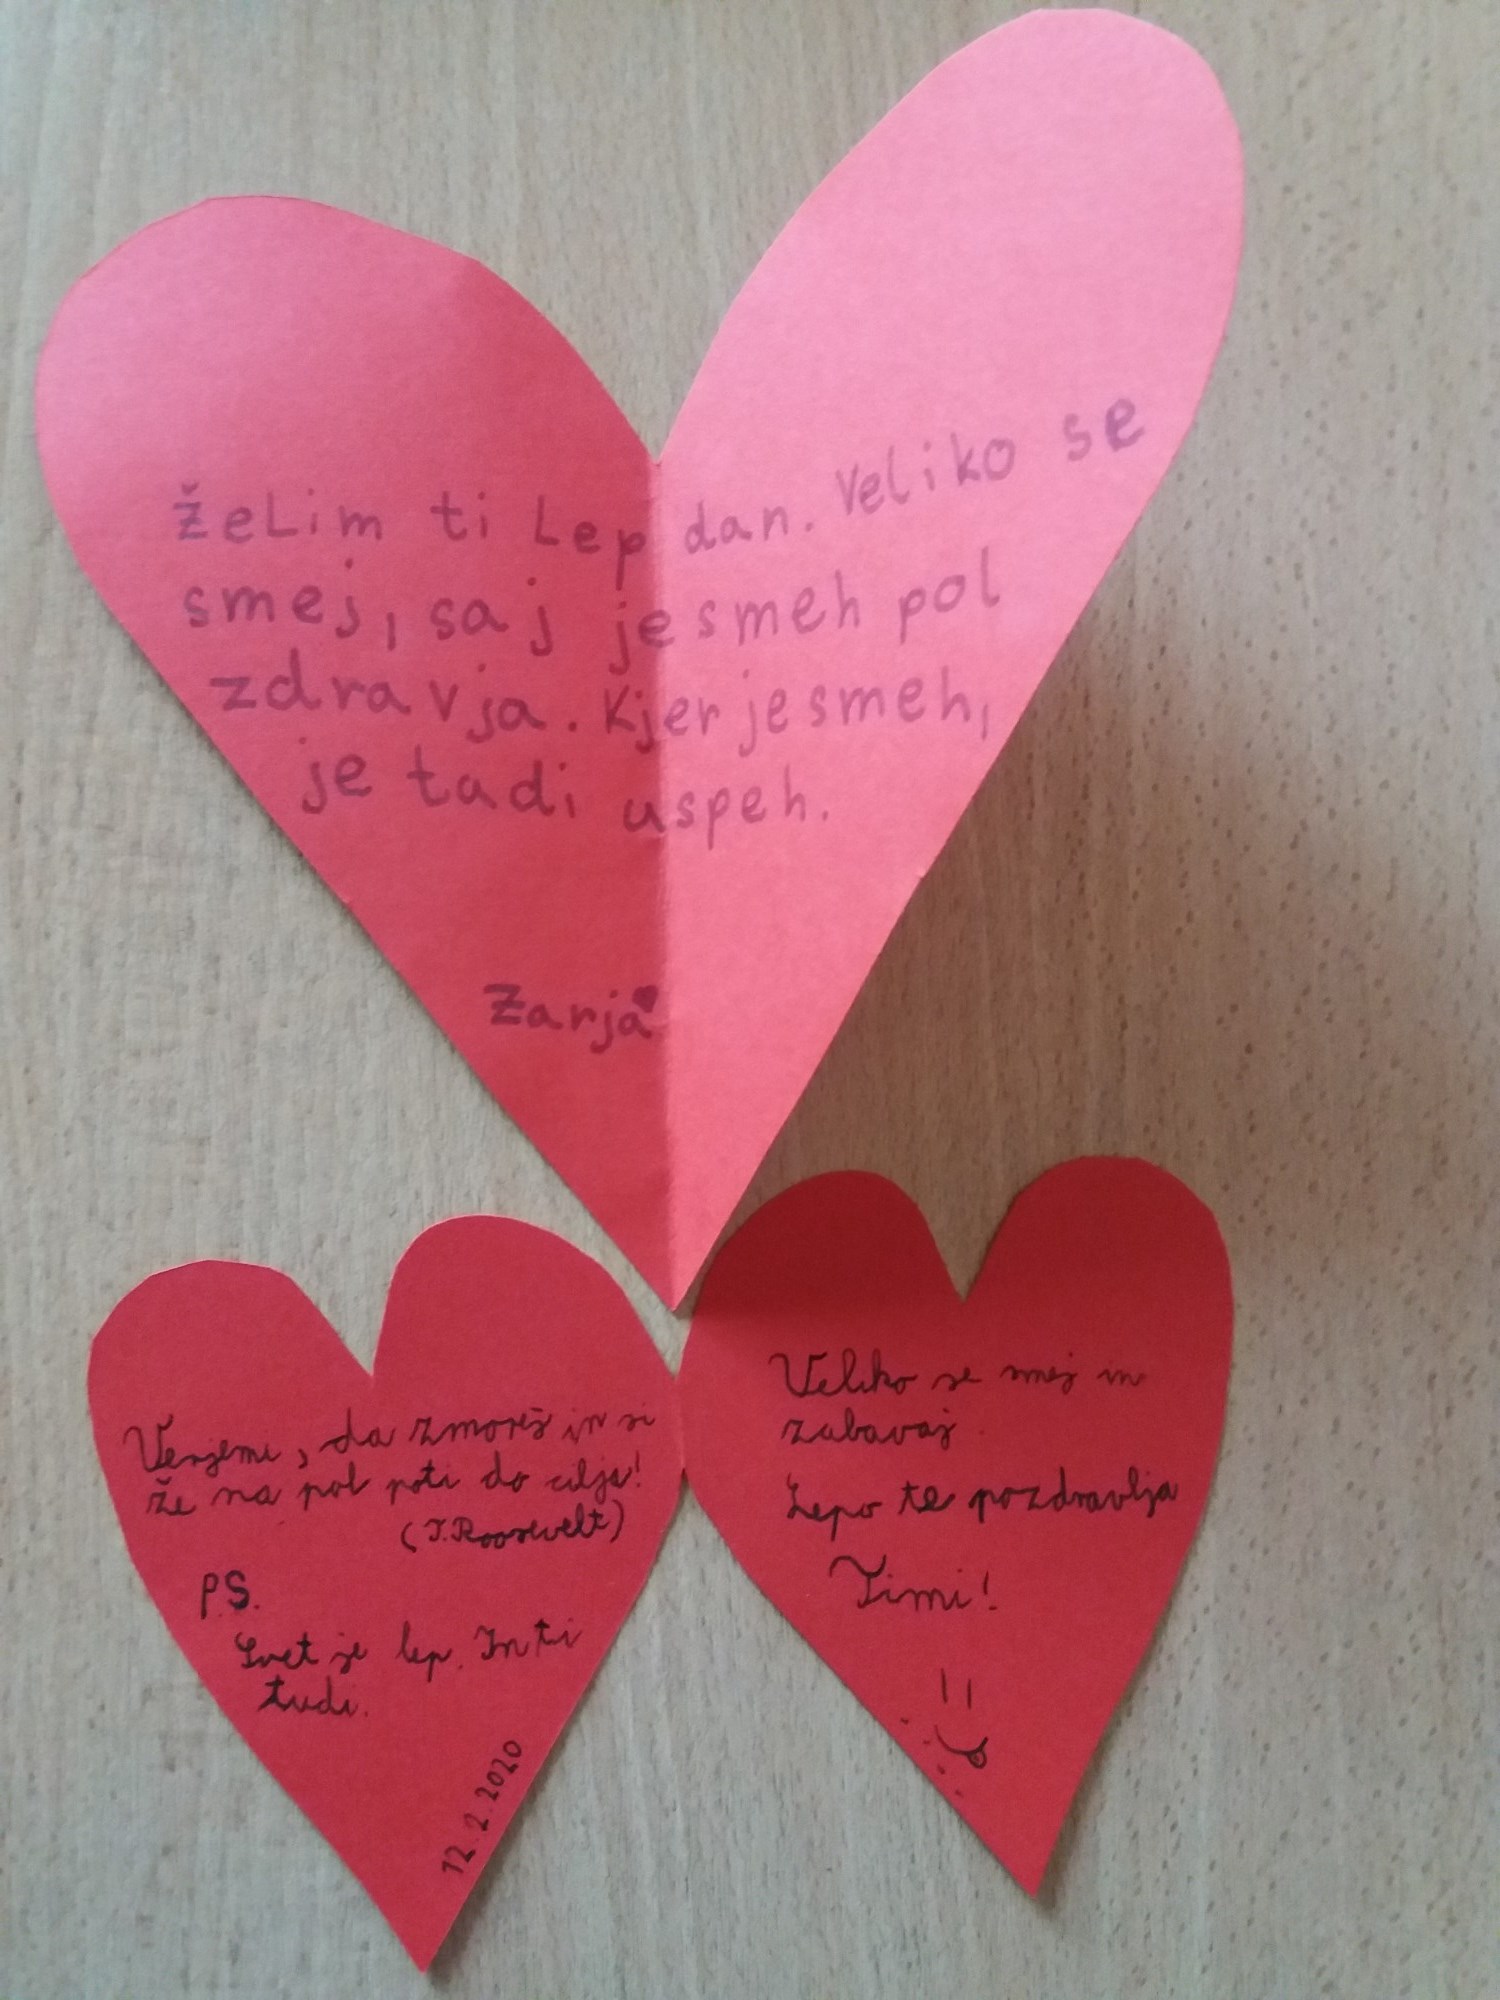 želim ti Lep dan. Veliko se
smej, saj je smeh pol
zdravja. Kjer je smeh,
je tudi uspeh.
Zarja
Verjemi, da zmoreš in si
že na pol poti do cilja!
(T. Roosevelt)
P.S.
Svet je lep. In ti
tudi.
12. 2. 2020
Veliko se smej in
zabavaj
Lepo te pozdravlja
Timi!